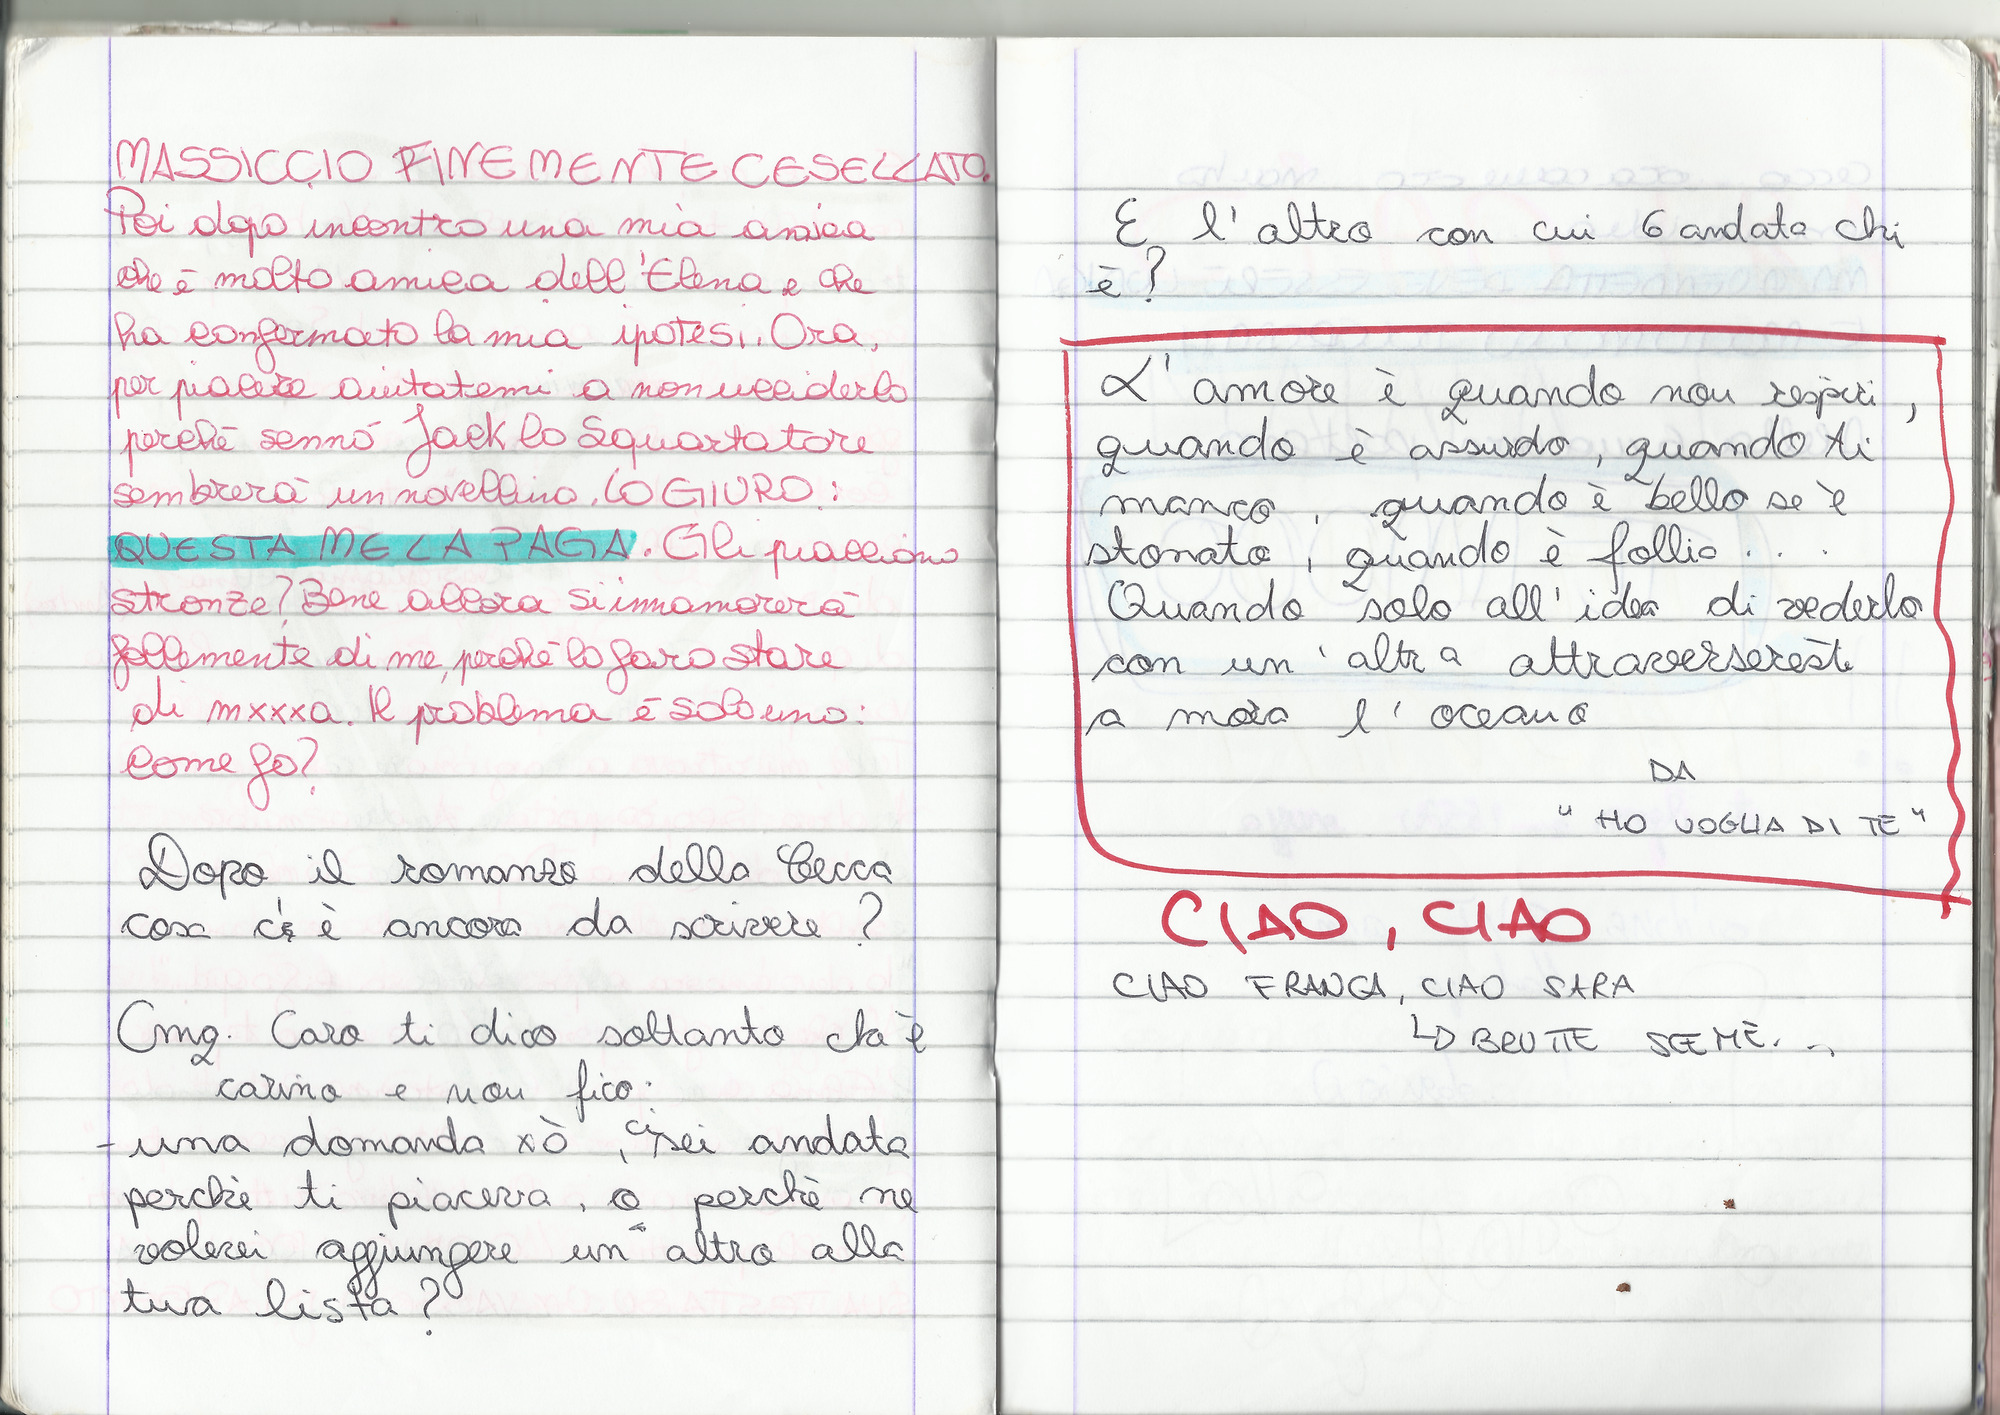 MASSICCIO FINEMENTE CESELLATO.
Poi dopo incontro una mia amica
che è molto amica dell'Elena e che
ha confermato la mia ipotesi. Ora,
per piacere aiutatemi a non ucciderlo
perché sennó Jack lo Squartatore
sembrerà un novellino. LO GIURO:
QUESTA ME LA PAGA. Gli piacciono
stronze? Bene allora si innamorerà
follemente di me, perché lo farò stare
di mxxxa. Il problema è solo uno:
come fo?
Dopo il romanzo della Cecca
cosa c'è è ancora da scrivere?
Cmq. Caro ti dico soltanto che è
carino e non fico:
- una domanda xò, ci sei andata
perchè ti piaceva, o perchè ne
volevi aggiungere un altro alla
tua lista?
E l'altro con cui 6 andata chi
è?
L'amore è quando non respiri,
quando è assurdo, quando ti
manca, quando è bello se è
stonato, quando è follia...
Quando solo all'idea di vederlo
con un'altra attraverseresti
a nuoto l'oceano
DA
"HO VOGLIA DI TE"
CIAO, CIAO
CIAO FRANCA, CIAO SARA
BRUTTE SCEME...